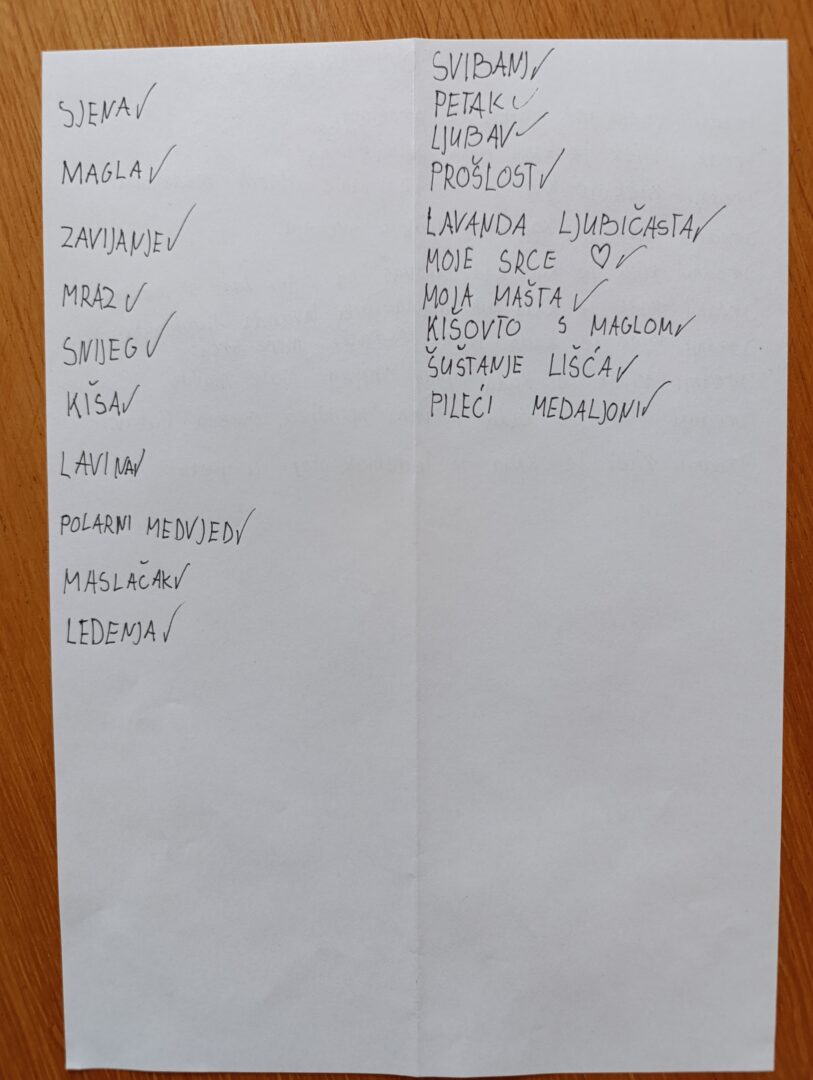 SJENA✓
MAGLA✓
ZAVIJANJE✓
MRAZ✓
SNIJEG✓
KIŠA✓
LAVINA✓
POLARNI MEDVJED✓
MASLAČAK✓
LEDENJA✓
SVIBANJ✓
PETAK✓
LJUBAV✓
PROŠLOST✓
LAVANDA LJUBIČASTA✓
MOJE SRCE ♡✓
MOJA MAŠTA✓
KIŠOVTO S MAGLOM✓
ŠUŠTANJE LIŠĆA✓
PILEĆI MEDALJONI✓